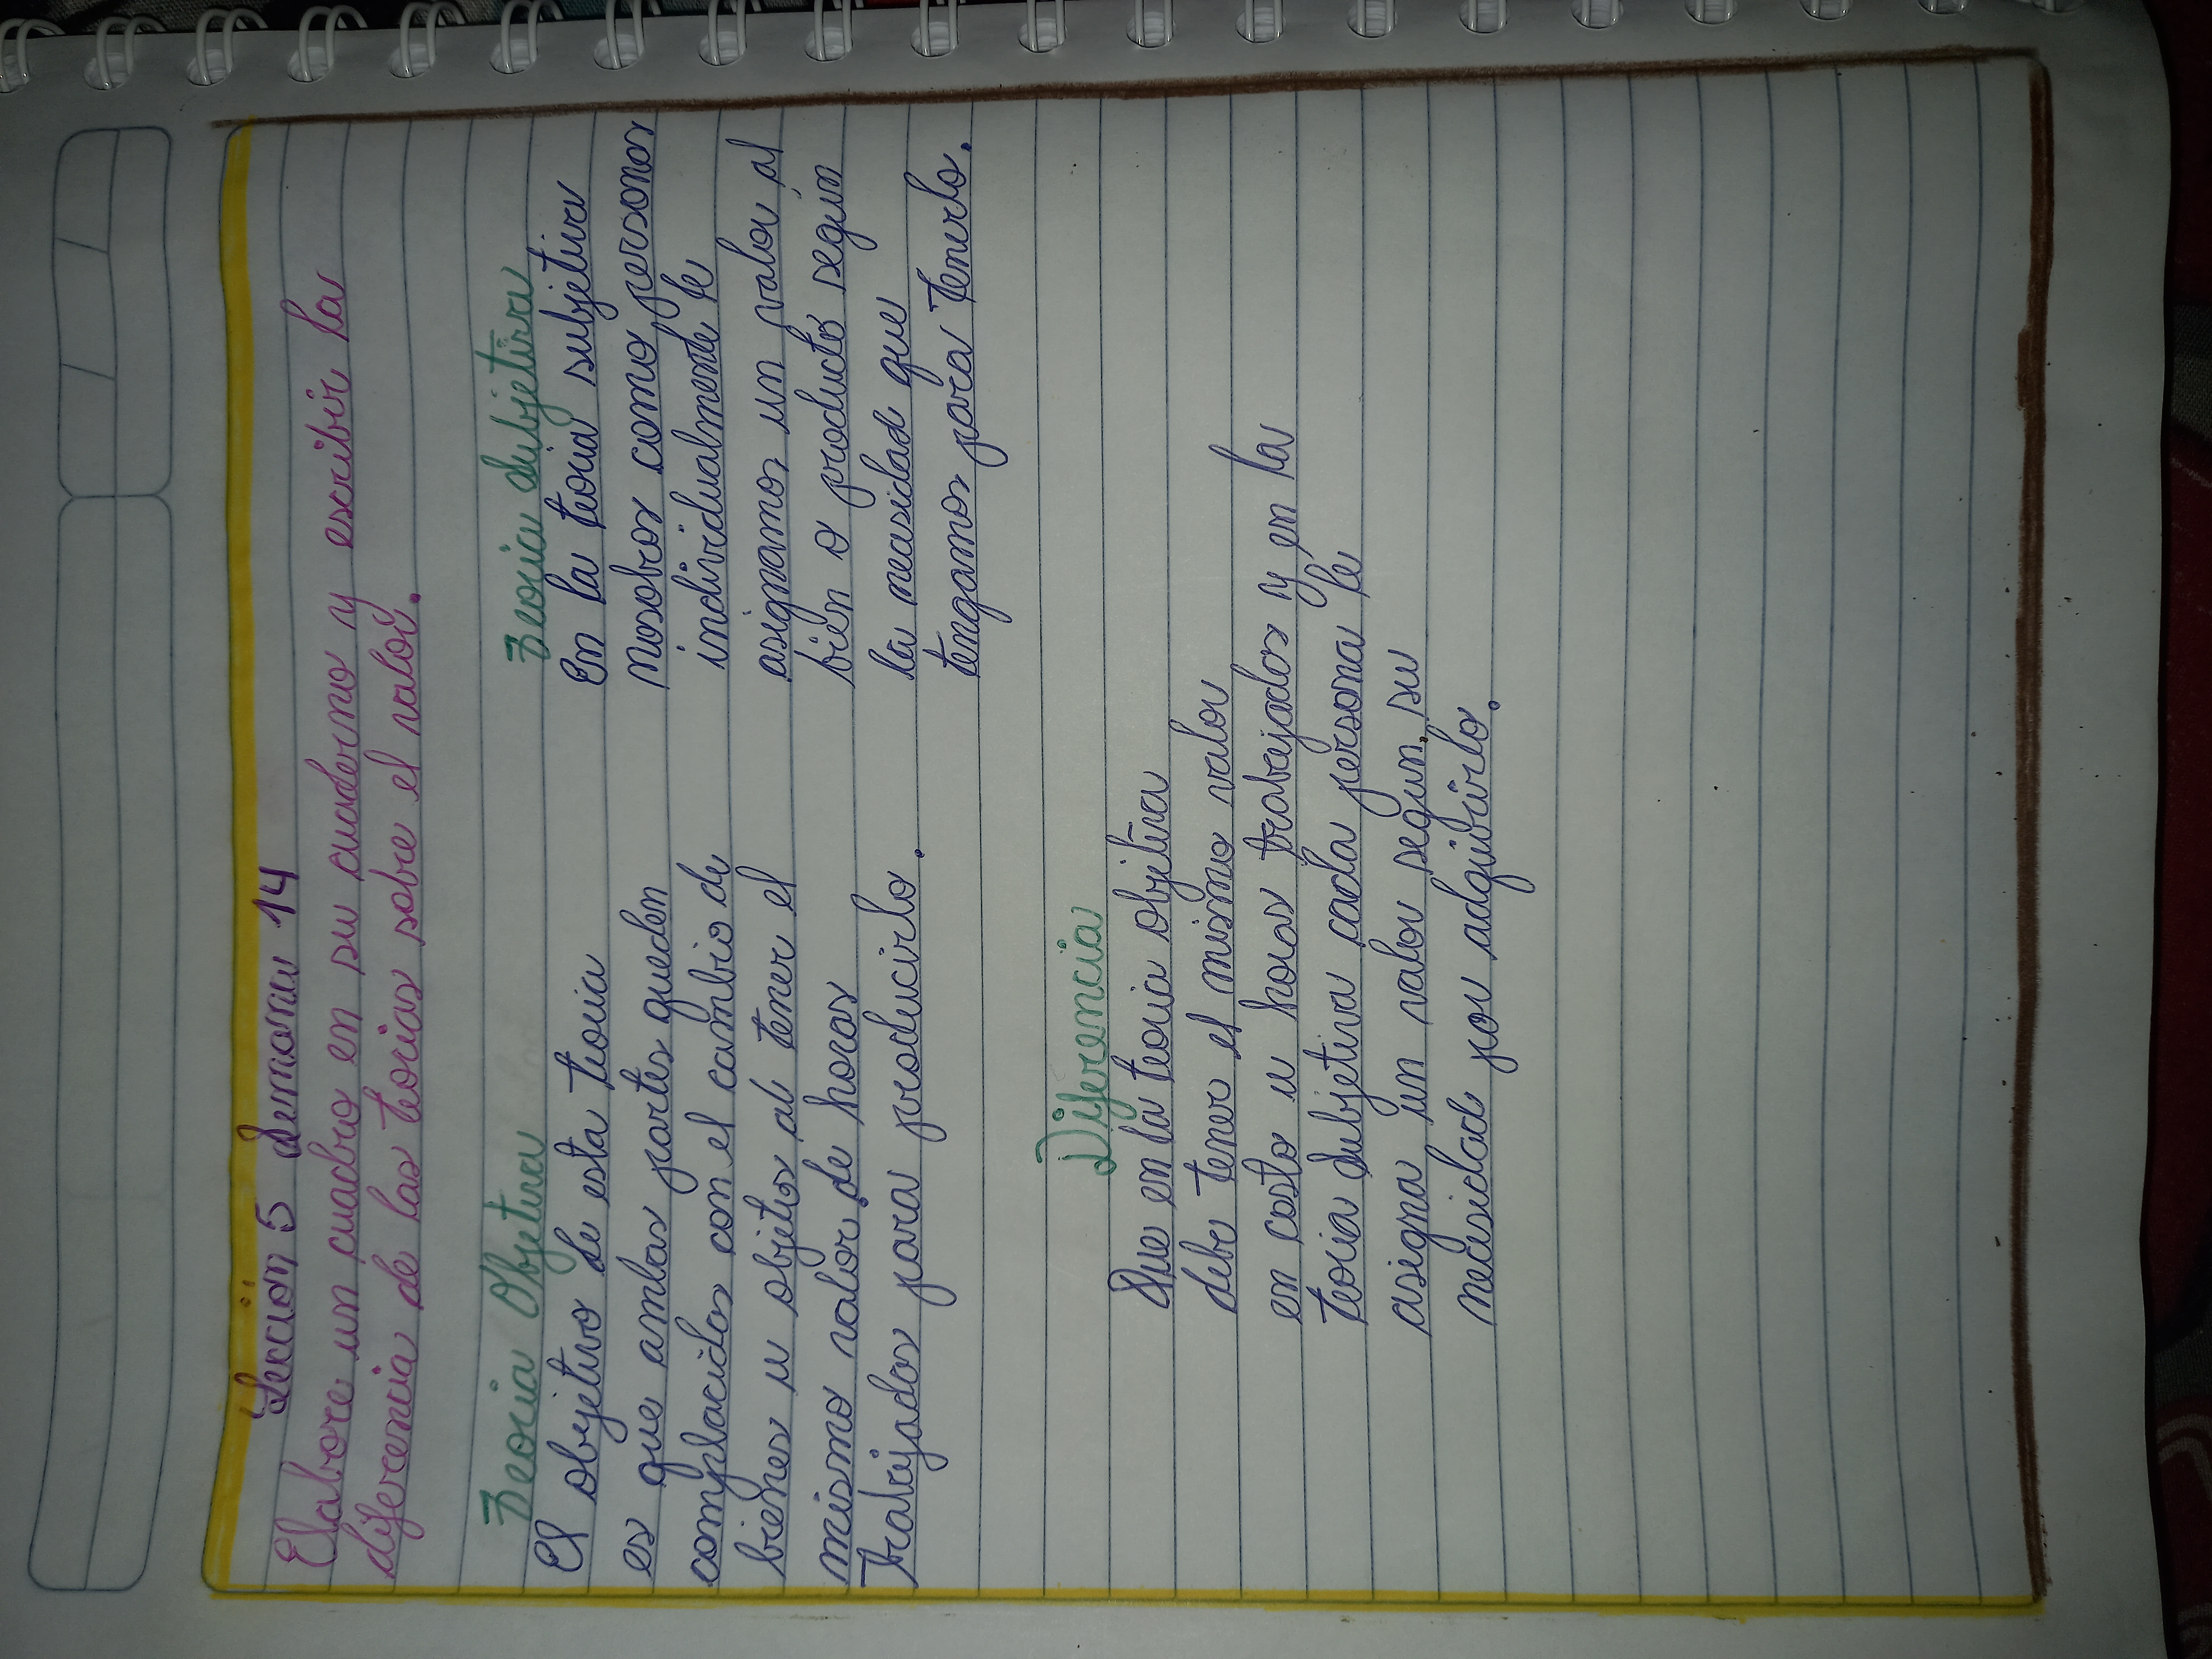 Leccion 5 Semana 14
Elabore un cuadro en su cuaderno y escribir la
diferencia de las teorias sobre el valor.
Teoria Objetiva
El objetivo de esta teoria
es que ambas partes queden
complacidas con el cambio de
bienes u objetos al tener el
mismo valor de horas
trabajadas para producirlo.
Teoria Subjetiva
En la teoria subjetiva
nosotros como personas
individualmente le
asignamos un valor al
bien o producto según
la necesidad que
tengamos para tenerlo.
Diferencia
Que en la teoria objetiva
debe tener el mismo valor
en costo u horas trabajadas y en la
teoria subjetiva cada persona le
asigna un valor segun su
necesidad por adquirirlo.